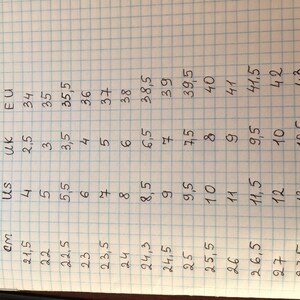 cm US UK EU
21,5 4 2,5 34
22 5 3 35
22,5 5,5 3,5 35,5
23 6 4 36
23,5 7 5 37
24 8 6 38
24,3 8,5 6,5 38,5
24,5 9 7 39
25 9,5 7,5 39,5
25,5 10 8 40
26 11 9 41
26,5 11,5 9,5 41,5
27 12 10 42